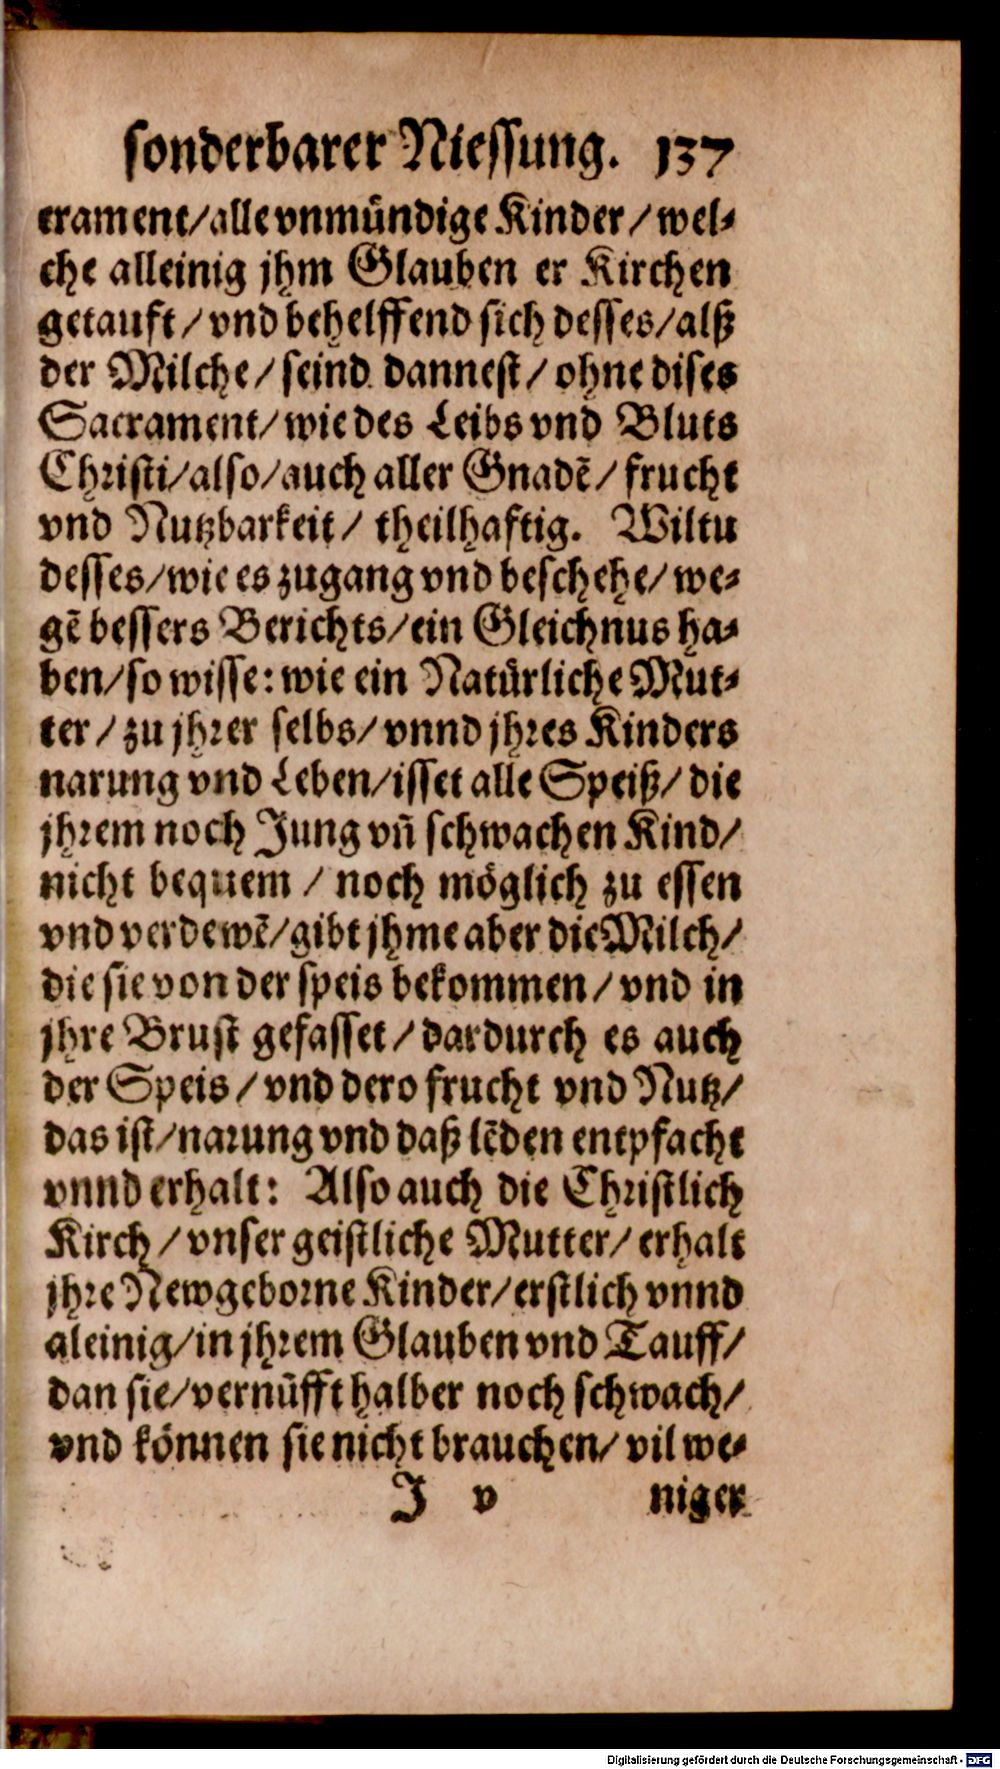 sonderbarer Niessung. 137
crament/alle vnmündige Kinder/wel⸗
che alleinig jhm Glauben er Kirchen
getauft/vnd behelffend sich desses/alß
der Milche/seind dannest/ohne dises
Sacrament/wie des Leibs vnd Bluts
Christi/also/auch aller Gnadẽ/frucht
vnd Nutzbarkeit/ theilhaftig. Wiltu
desses/wie es zugang vnd beschehe/we⸗
gẽ bessers Berichts/ein Gleichnus ha⸗
ben/so wisse: wie ein Natürliche Mut⸗
ter/zu jhrer selbs/vnnd jhres Kinders
narung vnd Leben/isset alle Speiß/die
jhrem noch Jung vñ schwachen Kind/
nicht bequem/noch möglich zu essen
vnd verdewẽ/gibt jhme aber die Milch/
die sie von der speis bekommen/vnd in
jhre Brust gefasset/dardurch es auch
der Speis/vnd dero frucht vnd Nutz/
das ist/narung vnd daß lẽden entpfacht
vnnd erhalt: Also auch die Christlich
Kirch/vnser geistliche Mutter/erhalt
jhre Newgeborne Kinder/erstlich vnnd
aleinig/in jhrem Glauben vnd Tauff/
dan sie/vernũfft halber noch schwach/
vnd können sie nicht brauchen/vil we⸗
J v niger
Digitalisierung gefördert durch die Deutsche Forschungsgemeinschaft - DFG